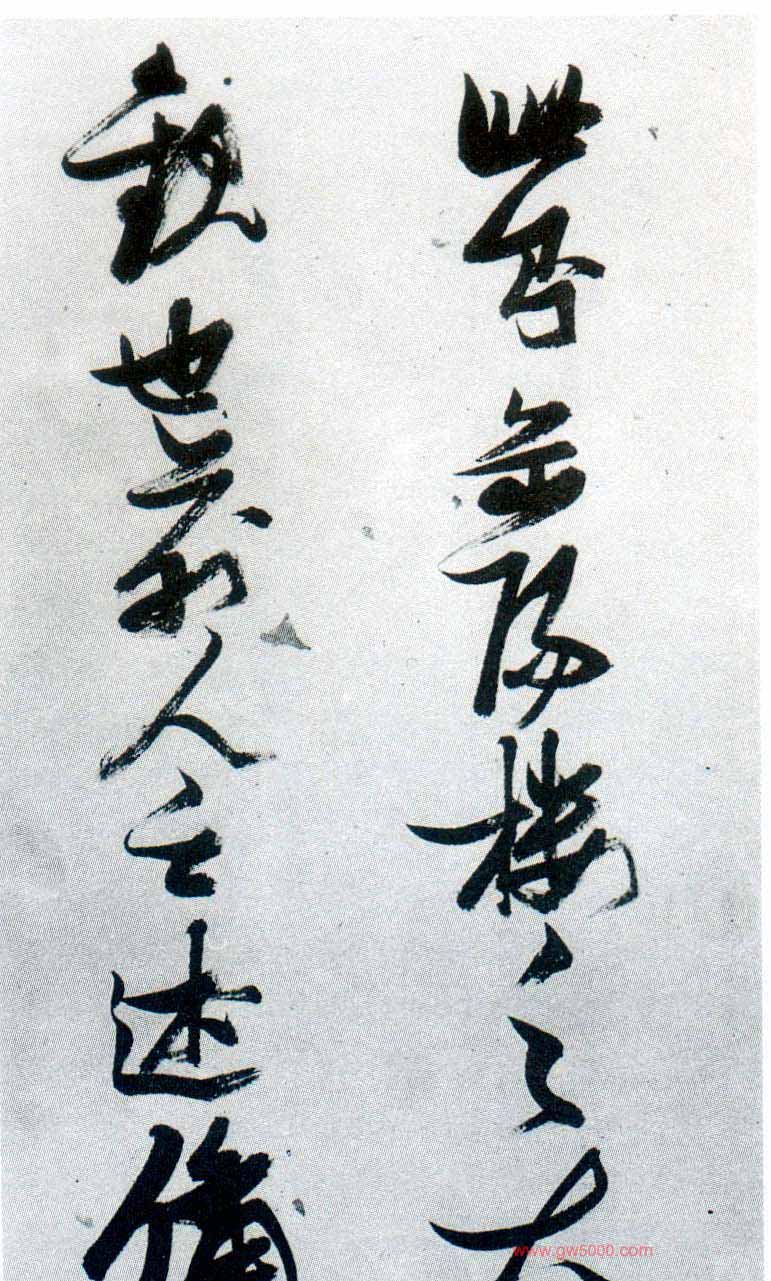 此則岳陽樓之大
觀也前人之述備
www.gw5000.com